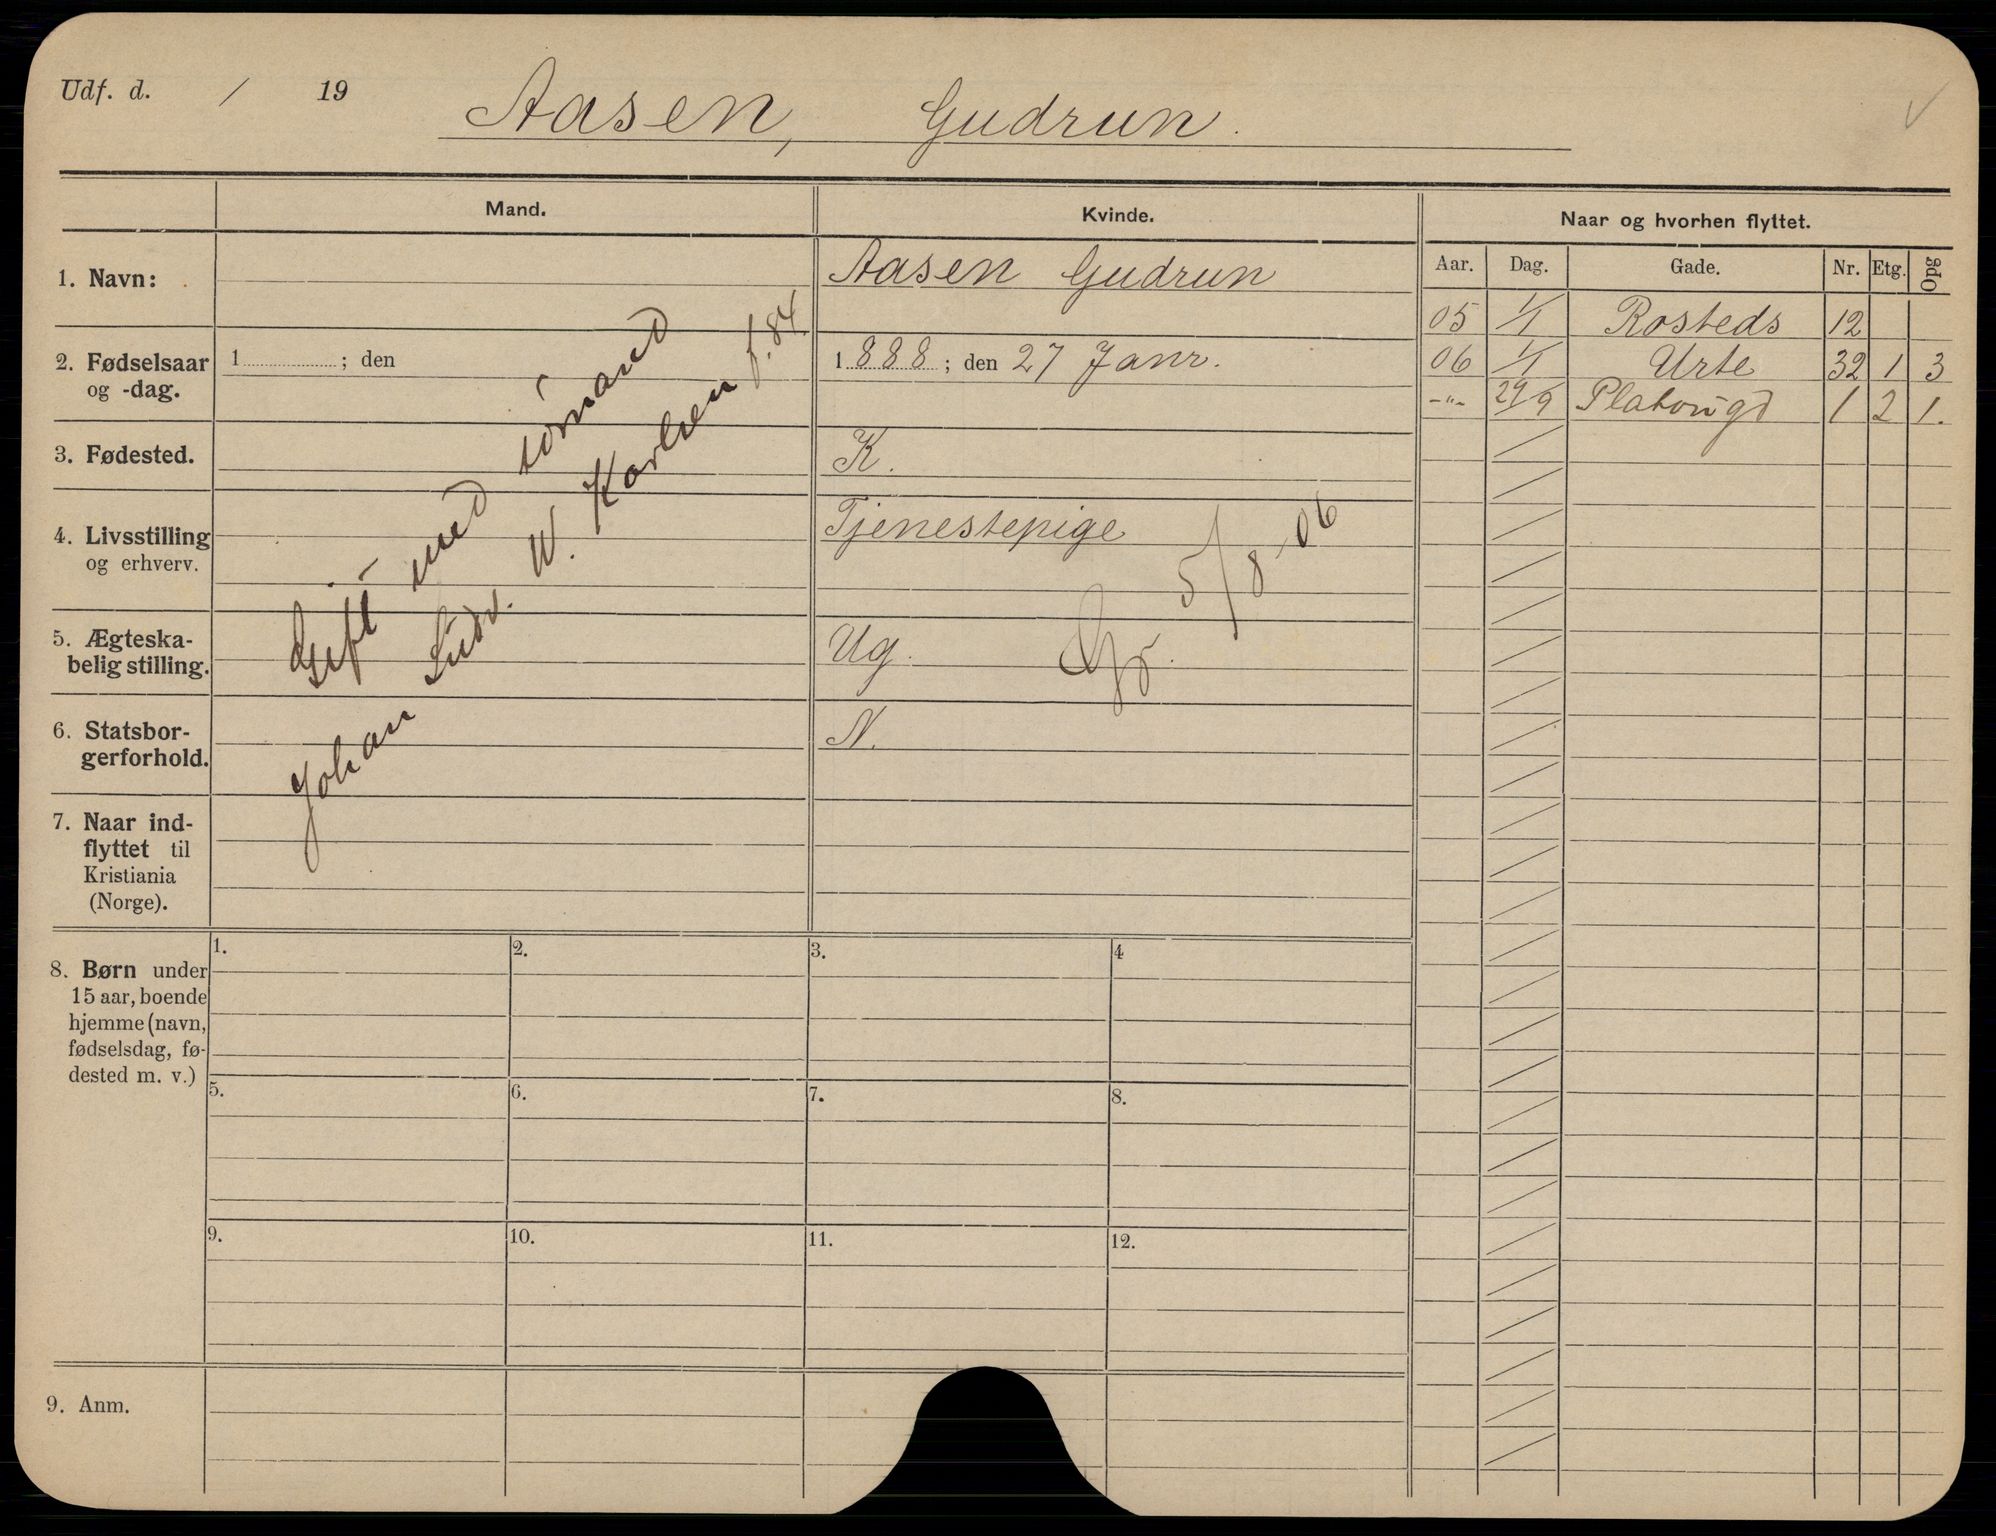 Udf. d. / 19
Aasen, Gudrun.
Mand.
Kvinde.
Naar og hvorhen flyttet.
Aar. Dag. Gade. Nr. Etg. Opg
1. Navn:
Aasen Gudrun
05 1/1 Rosteds 12
2. Fødselsaar
og -dag.
1 ; den
1888; den 27 Janr.
06 1/1 Urte 32 1 3
-"- 29/9 Platougd 1 2 1.
3. Fødested.
K.
4. Livsstilling
og erhverv.
Tjenestepige
5. Ægteska-
belig stilling.
Ug.
Gr. 5/8-06
6. Statsbor-
gerforhold.
N.
Gift med sømand
Johan Ludv. W. Karlsen f. 84.
7. Naar ind-
flyttet til
Kristiania
(Norge).
8. Børn under
15 aar, boende
hjemme (navn,
fødselsdag, fø-
dested m. v.)
1. 2. 3. 4
5. 6. 7. 8.
9. 10. 11. 12.
9. Anm.